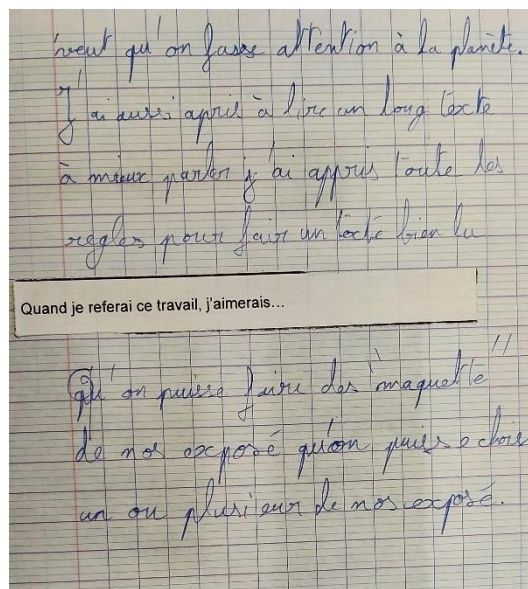 veut qu'on fasse attention à la planète.
J'ai aussi apris à lire un long texte
à mieux parler j'ai appris toute les
regles pour fair un texte bien lu
Quand je referai ce travail, j'aimerais…
Qu'on puisse faire des "maquette"
de nos exposé qu'on puisse chois
un ou plusieur de nos exposé.